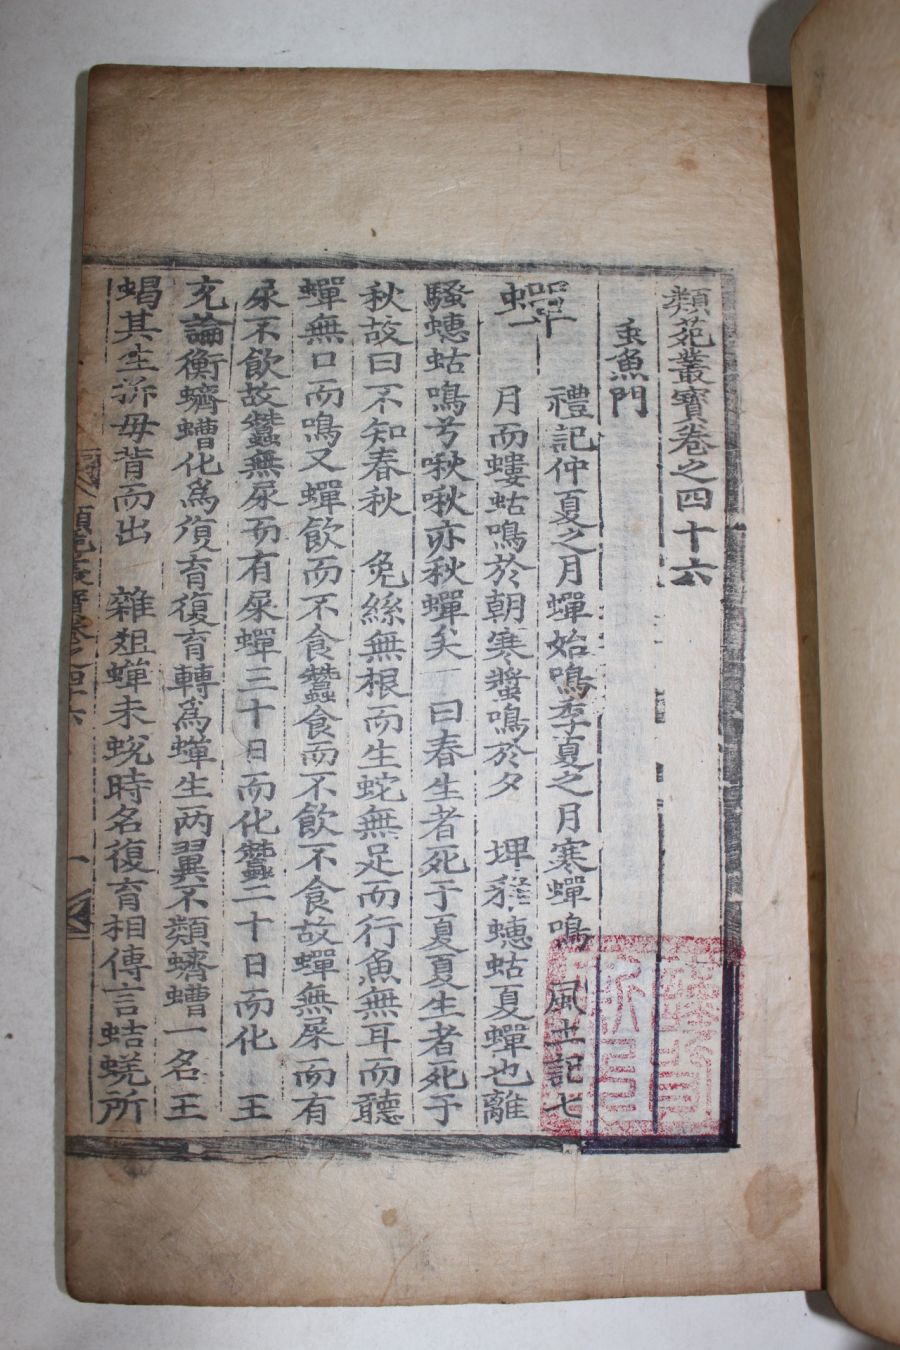 類苑叢寳卷之四十六
虫魚門
蟬 禮記仲夏之月蟬始鳴季夏之月寒蟬鳴 風土記七
月而螻蛄鳴於朝寒螿鳴於夕 埤 蟪蛄夏蟬也離
騷蟪蛄鳴兮啾啾亦秋蟬矣一曰春生者死于夏夏生者死于
秋故曰不知春秋 免絲無根而生蛇無足而行魚無耳而聽
蟬無口而鳴又蟬飲而不食蠶食而不飲不食故蟬無屎而有
尿不飲故蠶無尿而有屎蟬三十日而化蠶二十日而化 王
充論衡蠐螬化爲復育復育轉爲蟬生两翼不類蠐螬一名王
蝎其生拆母背而出 雜俎蟬未蛻時名復育相傳言蛣蜣所
類苑叢寳卷之四十六 一